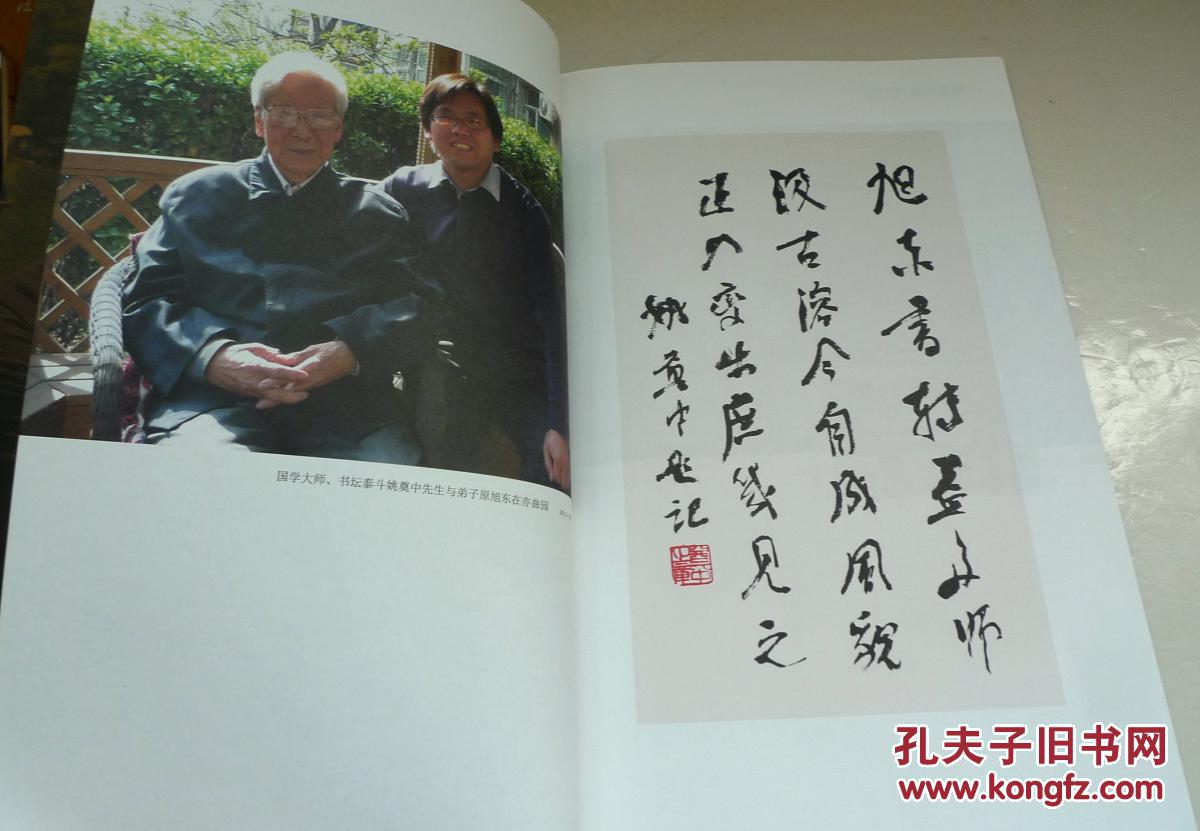 国学大师、书坛泰斗姚奠中先生与弟子原旭东在亦曲园
旭东书转益多师
汲古溶今自成風貌
正入变出庶幾見之
姚奠中题记
孔夫子旧书网
www.kongfz.com